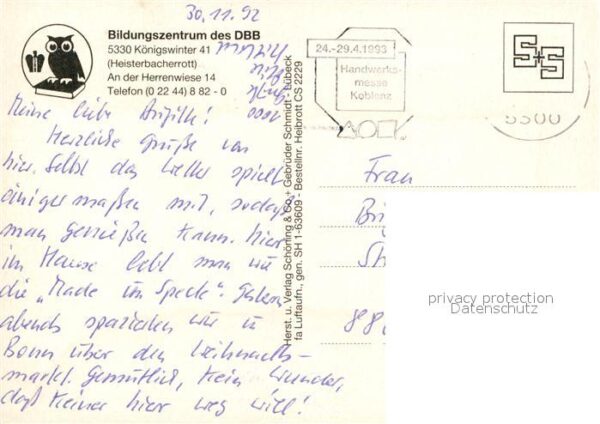 30.11.92
Bildungszentrum des DBB
5330 Königswinter 41
(Heisterbacherrott)
An der Herrenwiese 14
Telefon (0 22 44) 8 82 - 0
Meine liebe !
Herzliche Grüße von
hier. Selbst das Wetter spielt
einigermaßen mit, sodaß
man genießen kann. Hier
im Hause lebt man wie
die „Made im Speck". Gestern
abends spazierten wir in
Bonn über den Weihnachts-
markt. Gemütlich, kein Wunder,
daß keiner hier weg will!
Herst. u. Verlag Schöning & Co. + Gebrüder Schmidt · Lübeck
fa Luftaufn., gen. SH 1-63609 - Bestellnr. Heibrott CS 2229
24.-29.4.1993
Handwerks-
messe
Koblenz
S+S
5300
Frau
Bri
Sh
88
privacy protection
Datenschutz